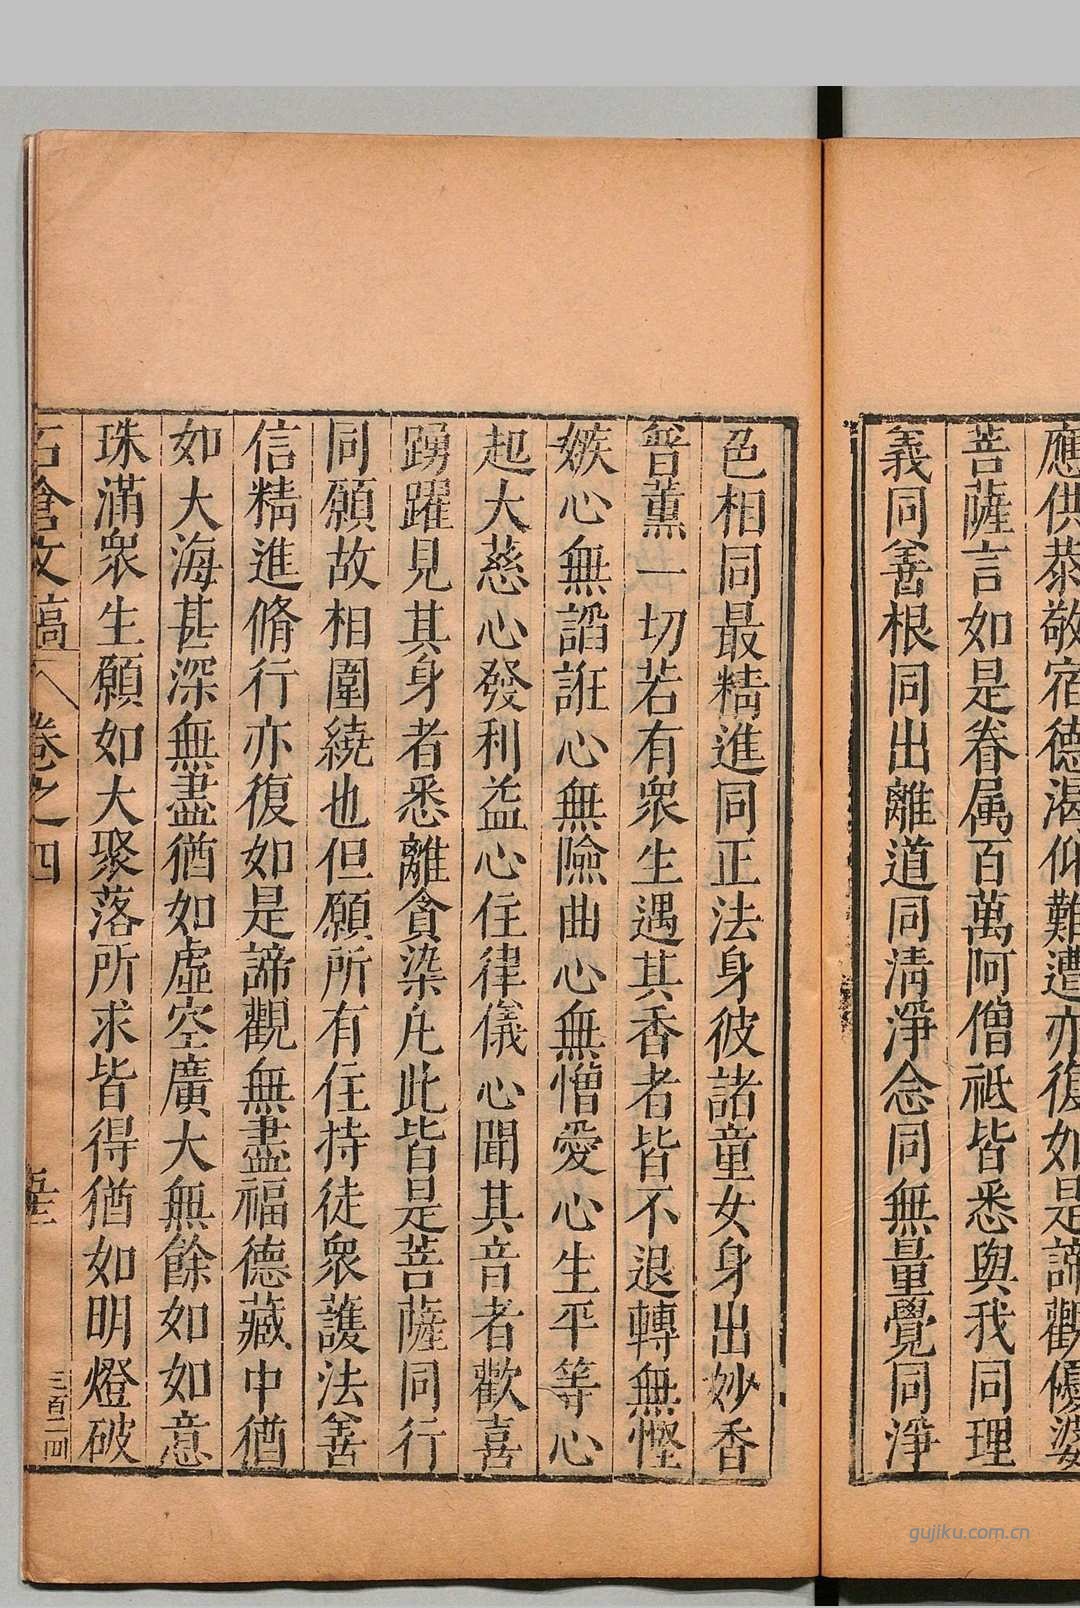 應供恭敬宿德渴仰難遭亦復如是諦觀優婆
菩薩言如是眷属百萬阿僧祇皆悉與我同理
義同善根同出離道同清淨念同無量覺同淨
色相同最精進同正法身彼諸童女身出妙香
普薰一切若有衆生遇其香者皆不退轉無慳
嫉心無諂誑心無險曲心無憎愛心生平等心
起大慈心發利益心住律儀心聞其音者歡喜
踴躍見其身者悉離貪染凢此皆是菩薩同行
同願故相圍繞也但願所有住持徒衆護法善
信精進脩行亦復如是諦觀無盡福德藏中猶
如大海甚深無盡猶如虛空廣大無餘如如意
珠滿衆生願如大聚落所求皆得猶如明燈破
石倉文稿 卷之四 五十三 三百二四
gujiku.com.cn